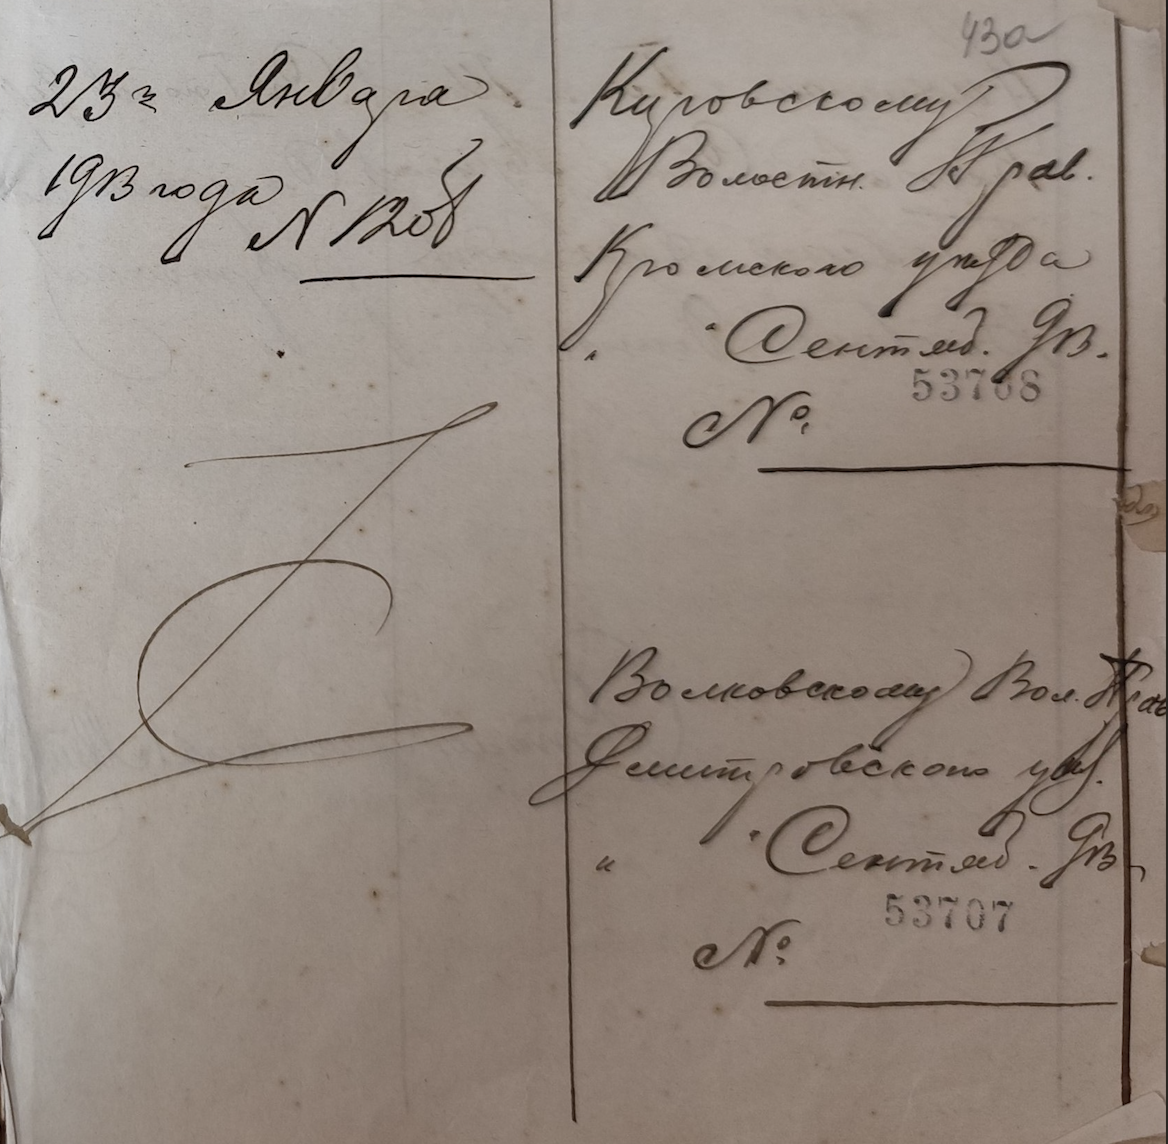 43а
23го Января
1913 года
N 1206
Куровскому
Волостн. Прав.
Кромского уѣзда
" " Сентяб. 913.
53708
№
Волковскому Вол. Прав
Дмитровского уѣз.
" " Сентяб. 913
53707
№